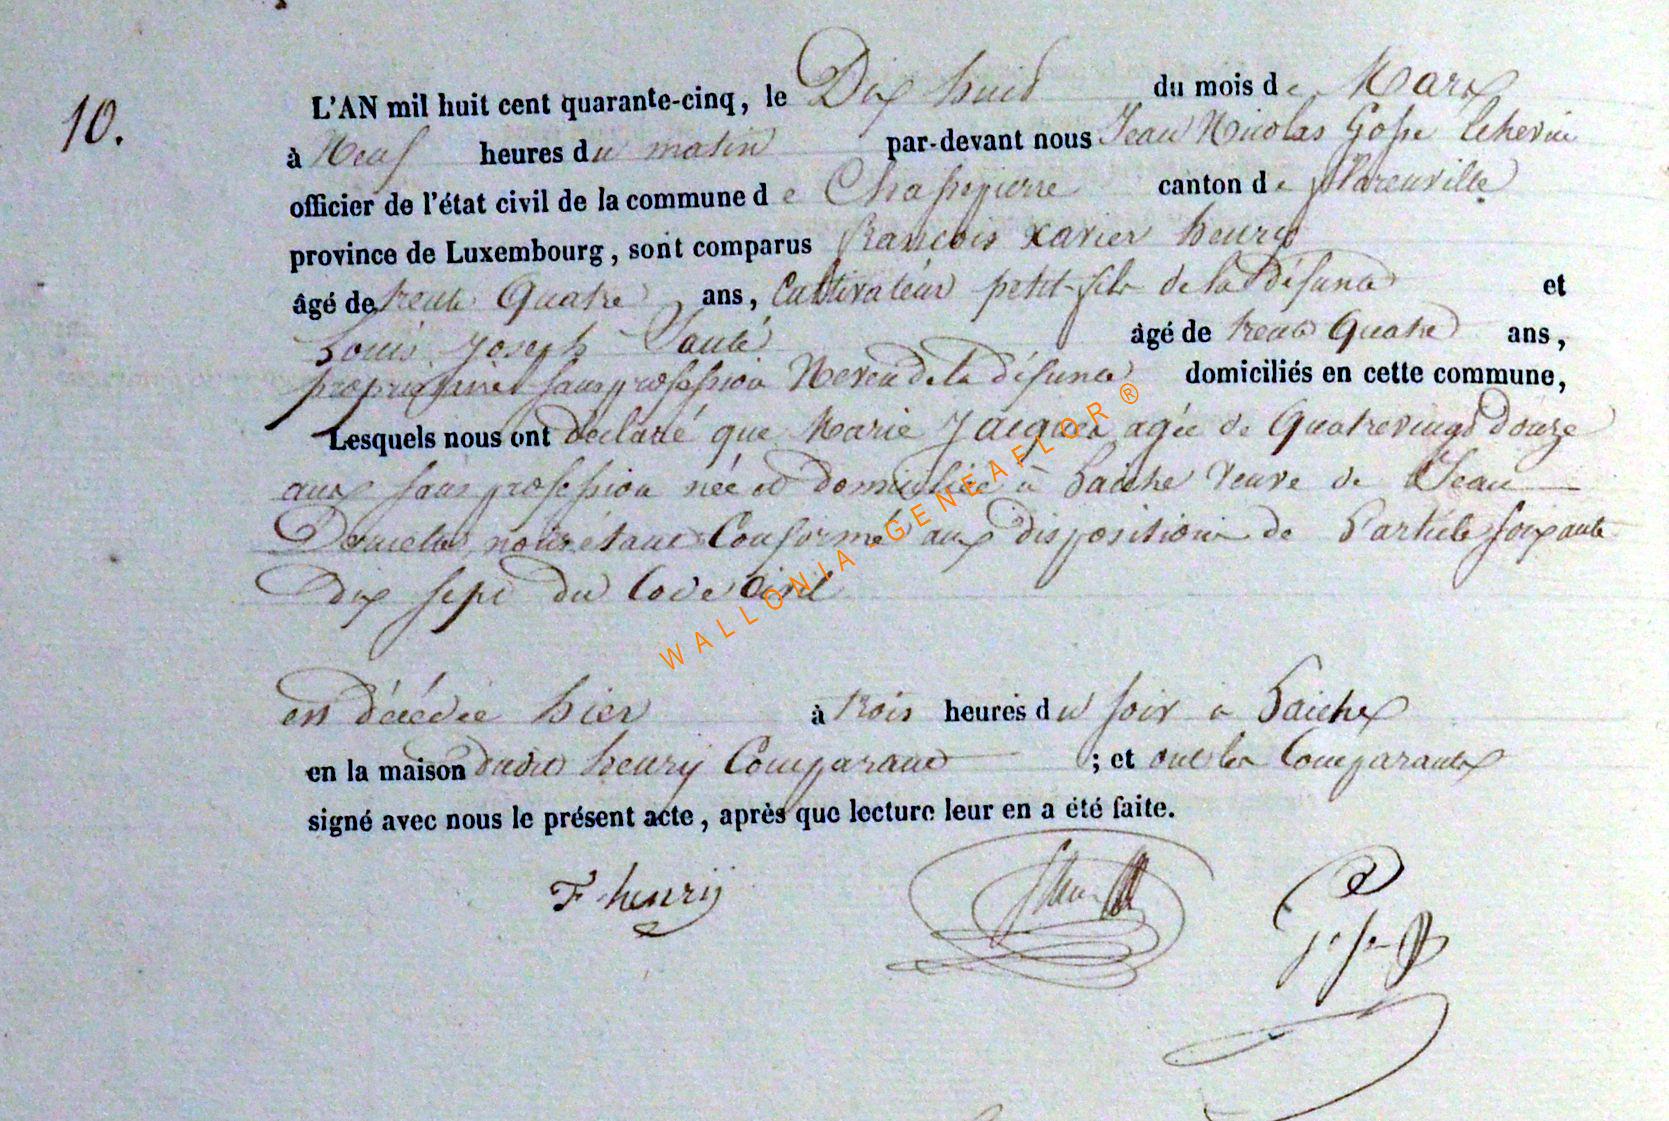 10.
L'AN mil huit cent quarante-cinq, le Dix huit du mois de Mars
à Neuf heures du matin par-devant nous Jean Nicolas Gosse Echevin
officier de l'état civil de la commune de Chassepierre canton de florenville
province de Luxembourg, sont comparus francois xavier henry
âgé de trente Quatre ans, Cultivateur petit-fils de la Défunte et
Louis Joseph âgé de trente Quatre ans,
propriétaire sans profession Neveu de la défunte domiciliés en cette commune,
Lesquels nous ont déclaré que Marie Jacques agée de Quatrevingt douze
ans sans profession née et Domiciliée à Laiche veuve de Jean
nous étant Conformé aux dispositions de L'article soixante
Dix sept du Code Civil
est décédée hier à trois heures du soir à Laiche
en la maison dudit henry Comparant ; et ont les Comparants
signé avec nous le présent acte, après que lecture leur en a été faite.
F henrij
WALLONIA-GENEAFLOR ®